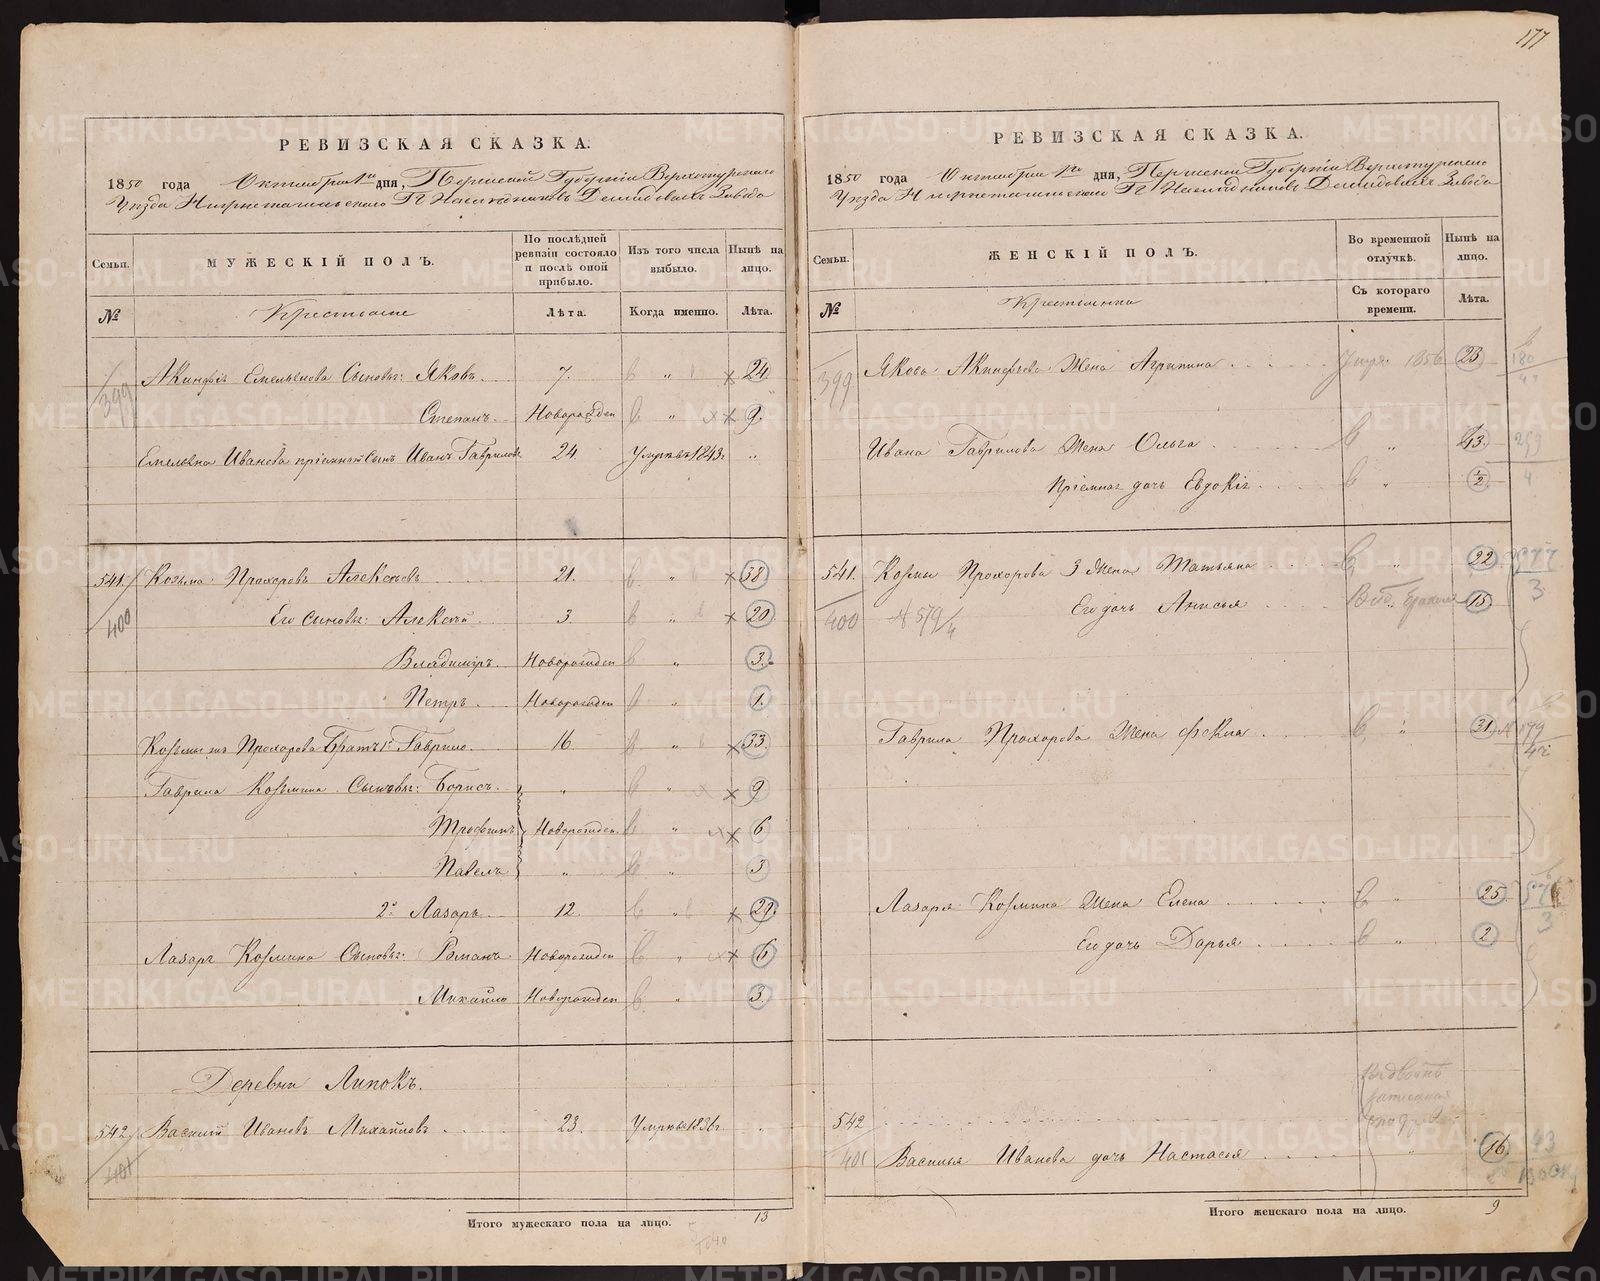 177
РЕВИЗСКАЯ СКАЗКА.
1850 года Октября 1го дня, Пермской Губернiи Верхотурскаго
Уѣзда Нижнетагильскаго Гг Наслѣдниковъ Демидовыхъ Завода
Семьи.
МУЖЕСКІЙ ПОЛЪ.
По послѣдней ревизіи состояло и послѣ оной прибыло.
Изъ того числа выбыло.
Нынѣ на лицо.
№
Крестьяне
Лѣта.
Когда именно.
Лѣта.
399
Акинфiя Емельянова Сыновья: Яковъ 7. 24
Степанъ Новорожден 9.
Емельяна Иванова прiемный Сынъ Иванъ Гавриловъ 24 Умеръ въ 1843г. „
541. Козьма Прохоровъ Алексѣевъ 21. 38
400
Его Сыновья: Алексѣй 3. 20
Владимiръ Новорожден 3.
Петръ Новорожден 1.
Козьмы Прохорова Братъ 1й Гаврило 16 33
Гаврила Козьмина Сыновья: Борисъ „ 9
Трофимъ Новорожден 6
Павелъ „ 3
2й Лазарь 12. 29.
Лазаря Козьмина Сыновья: Романъ Новорожден 6
Михайло Новорожден 3.
Деревни Липокъ.
542 Василiй Ивановъ Михайловъ 23. Умеръ въ 1836г
401
Итого мужескаго пола на лицо. 13
РЕВИЗСКАЯ СКАЗКА.
1850 года Октября 1го дня, Пермской Губернiи Верхотурскаго
Уѣзда Нижнетагильскаго Гг Наслѣдниковъ Демидовыхъ Завода
Семьи.
ЖЕНСКІЙ ПОЛЪ.
Во временной отлучкѣ.
Нынѣ на лицо.
№
Крестьянки
Съ котораго времени.
Лѣта.
399
Якова Акинфьева Жена Агрипина 23
180
Ивана Гаврилова Жена Ольга 43.
Прiемная дочь Евдокiя ½
4
541. Козьмы Прохорова 3 Жена Татьяна 22
400 579/4
Его дочь Анисья 15
3
Гаврила Прохорова Жена Фекла 31
179
Лазаря Козьмина Жена Елена 25
3
Его дочь Дарья 2
542
401 Василья Иванова дочь Настасья 16.
43
Итого женскаго пола на лицо. 9
METRIKI.GASO-URAL.RU